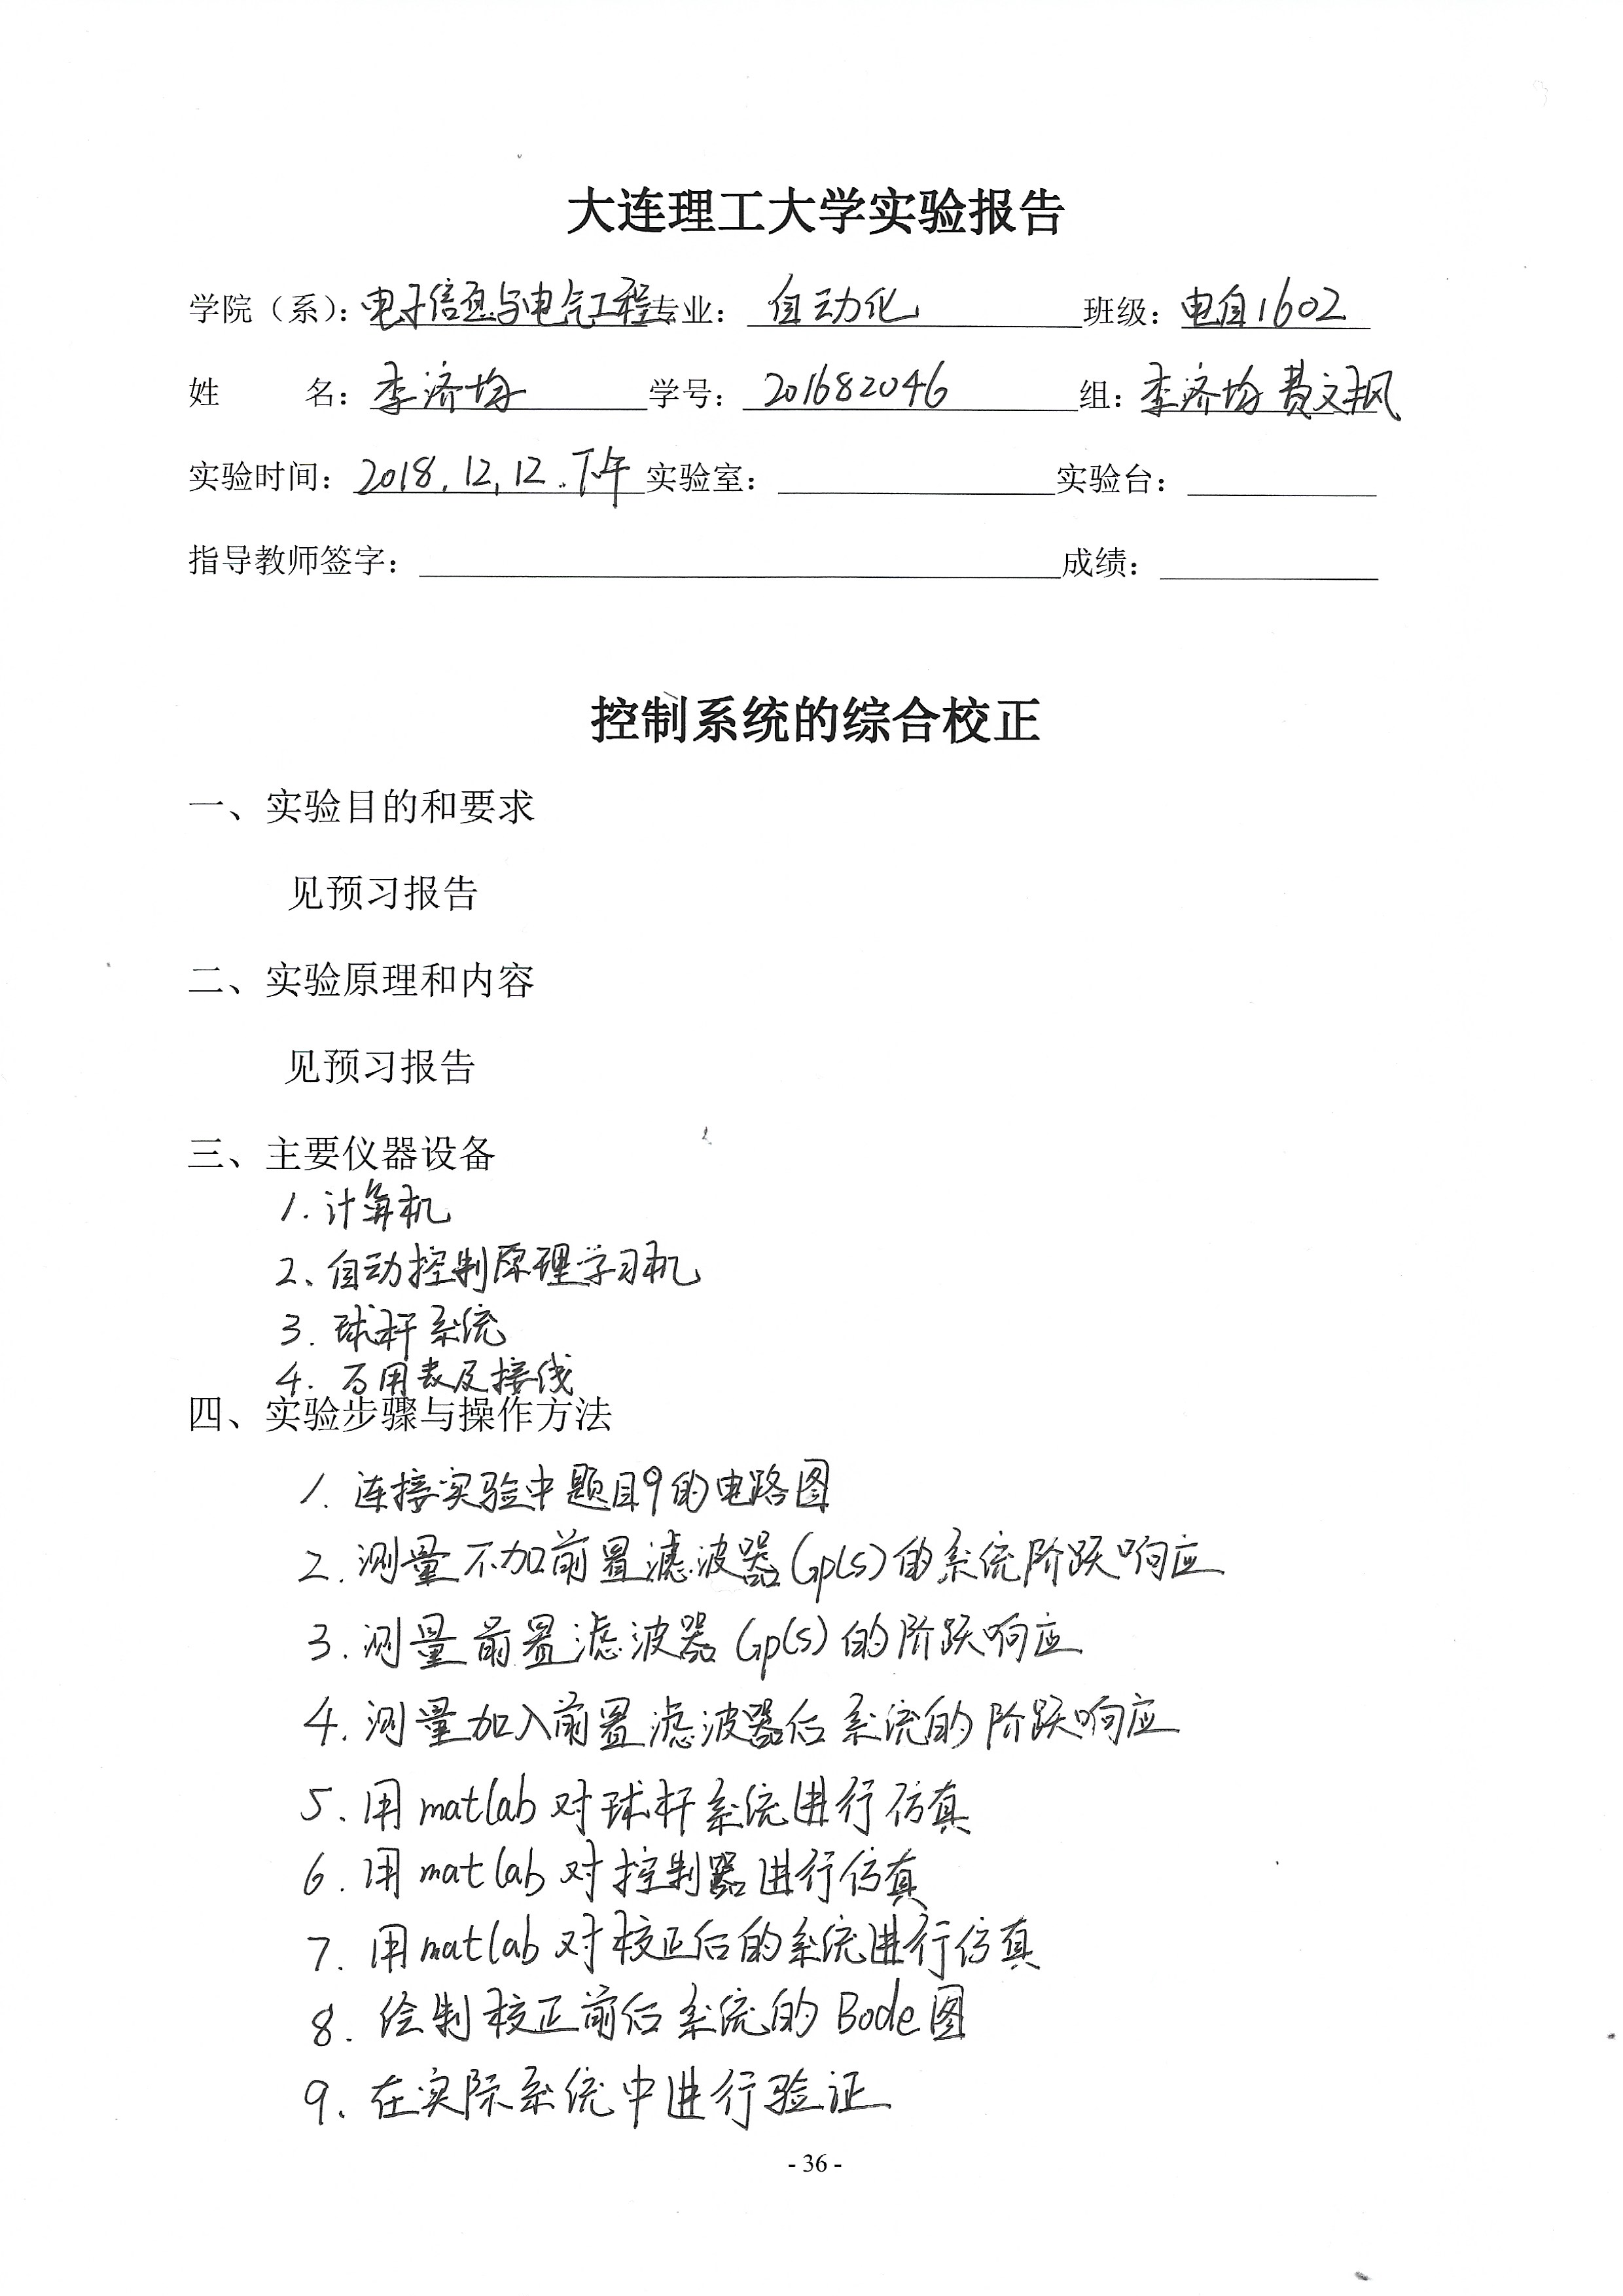 大连理工大学实验报告
学院（系）：电子信息与电气工程专业：自动化班级：电自1602
姓 名：李济均 学号：201682046 组：李济均 费文枫
实验时间：2018.12.12.下午 实验室： 实验台：
指导教师签字： 成绩：
控制系统的综合校正
一、实验目的和要求
见预习报告
二、实验原理和内容
见预习报告
三、主要仪器设备
1.计算机
2、自动控制原理学习机
3.球杆系统
4.万用表及接线
四、实验步骤与操作方法
1.连接实验中题目9的电路图
2.测量不加前置滤波器Gp(s)的系统阶跃响应
3.测量前置滤波器Gp(s)的阶跃响应
4.测量加入前置滤波器后系统的阶跃响应
5.用matlab对球杆系统进行仿真
6.用matlab对控制器进行仿真
7.用matlab对校正后的系统进行仿真
8.绘制校正前后系统的Bode图
9.在实际系统中进行验证
- 36 -